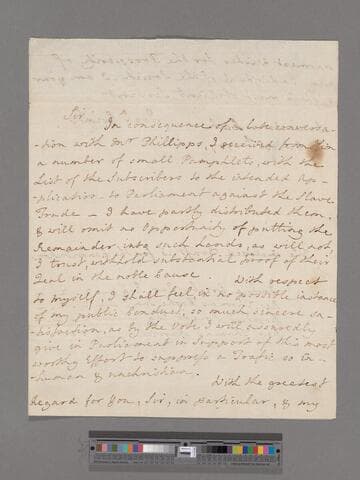 Sir
In consequence of a late conversa-
-tion with Mr Phillipps, I received from him
a number of small Pamphlets, with the
List of the Subscribers to the intended Ap-
-plication to Parliament against the Slave
Trade – I have partly distributed them,
& will omit no Opportunity of putting the
Remainder into such Hands, as will not
I trust, withhold substantial proof of their
Zeal in the noble Cause. With respect
to myself, I shall feel, in no possible instance
of my public Conduct, so much sincere sa-
-tisfaction, as by the Vote I will assuredly
give in Parliament in Support of this most
worthy Effort to suppress a Trafic so in-
-human & unchristian.
With the greatest
Regard for You, Sir, in particular, & my